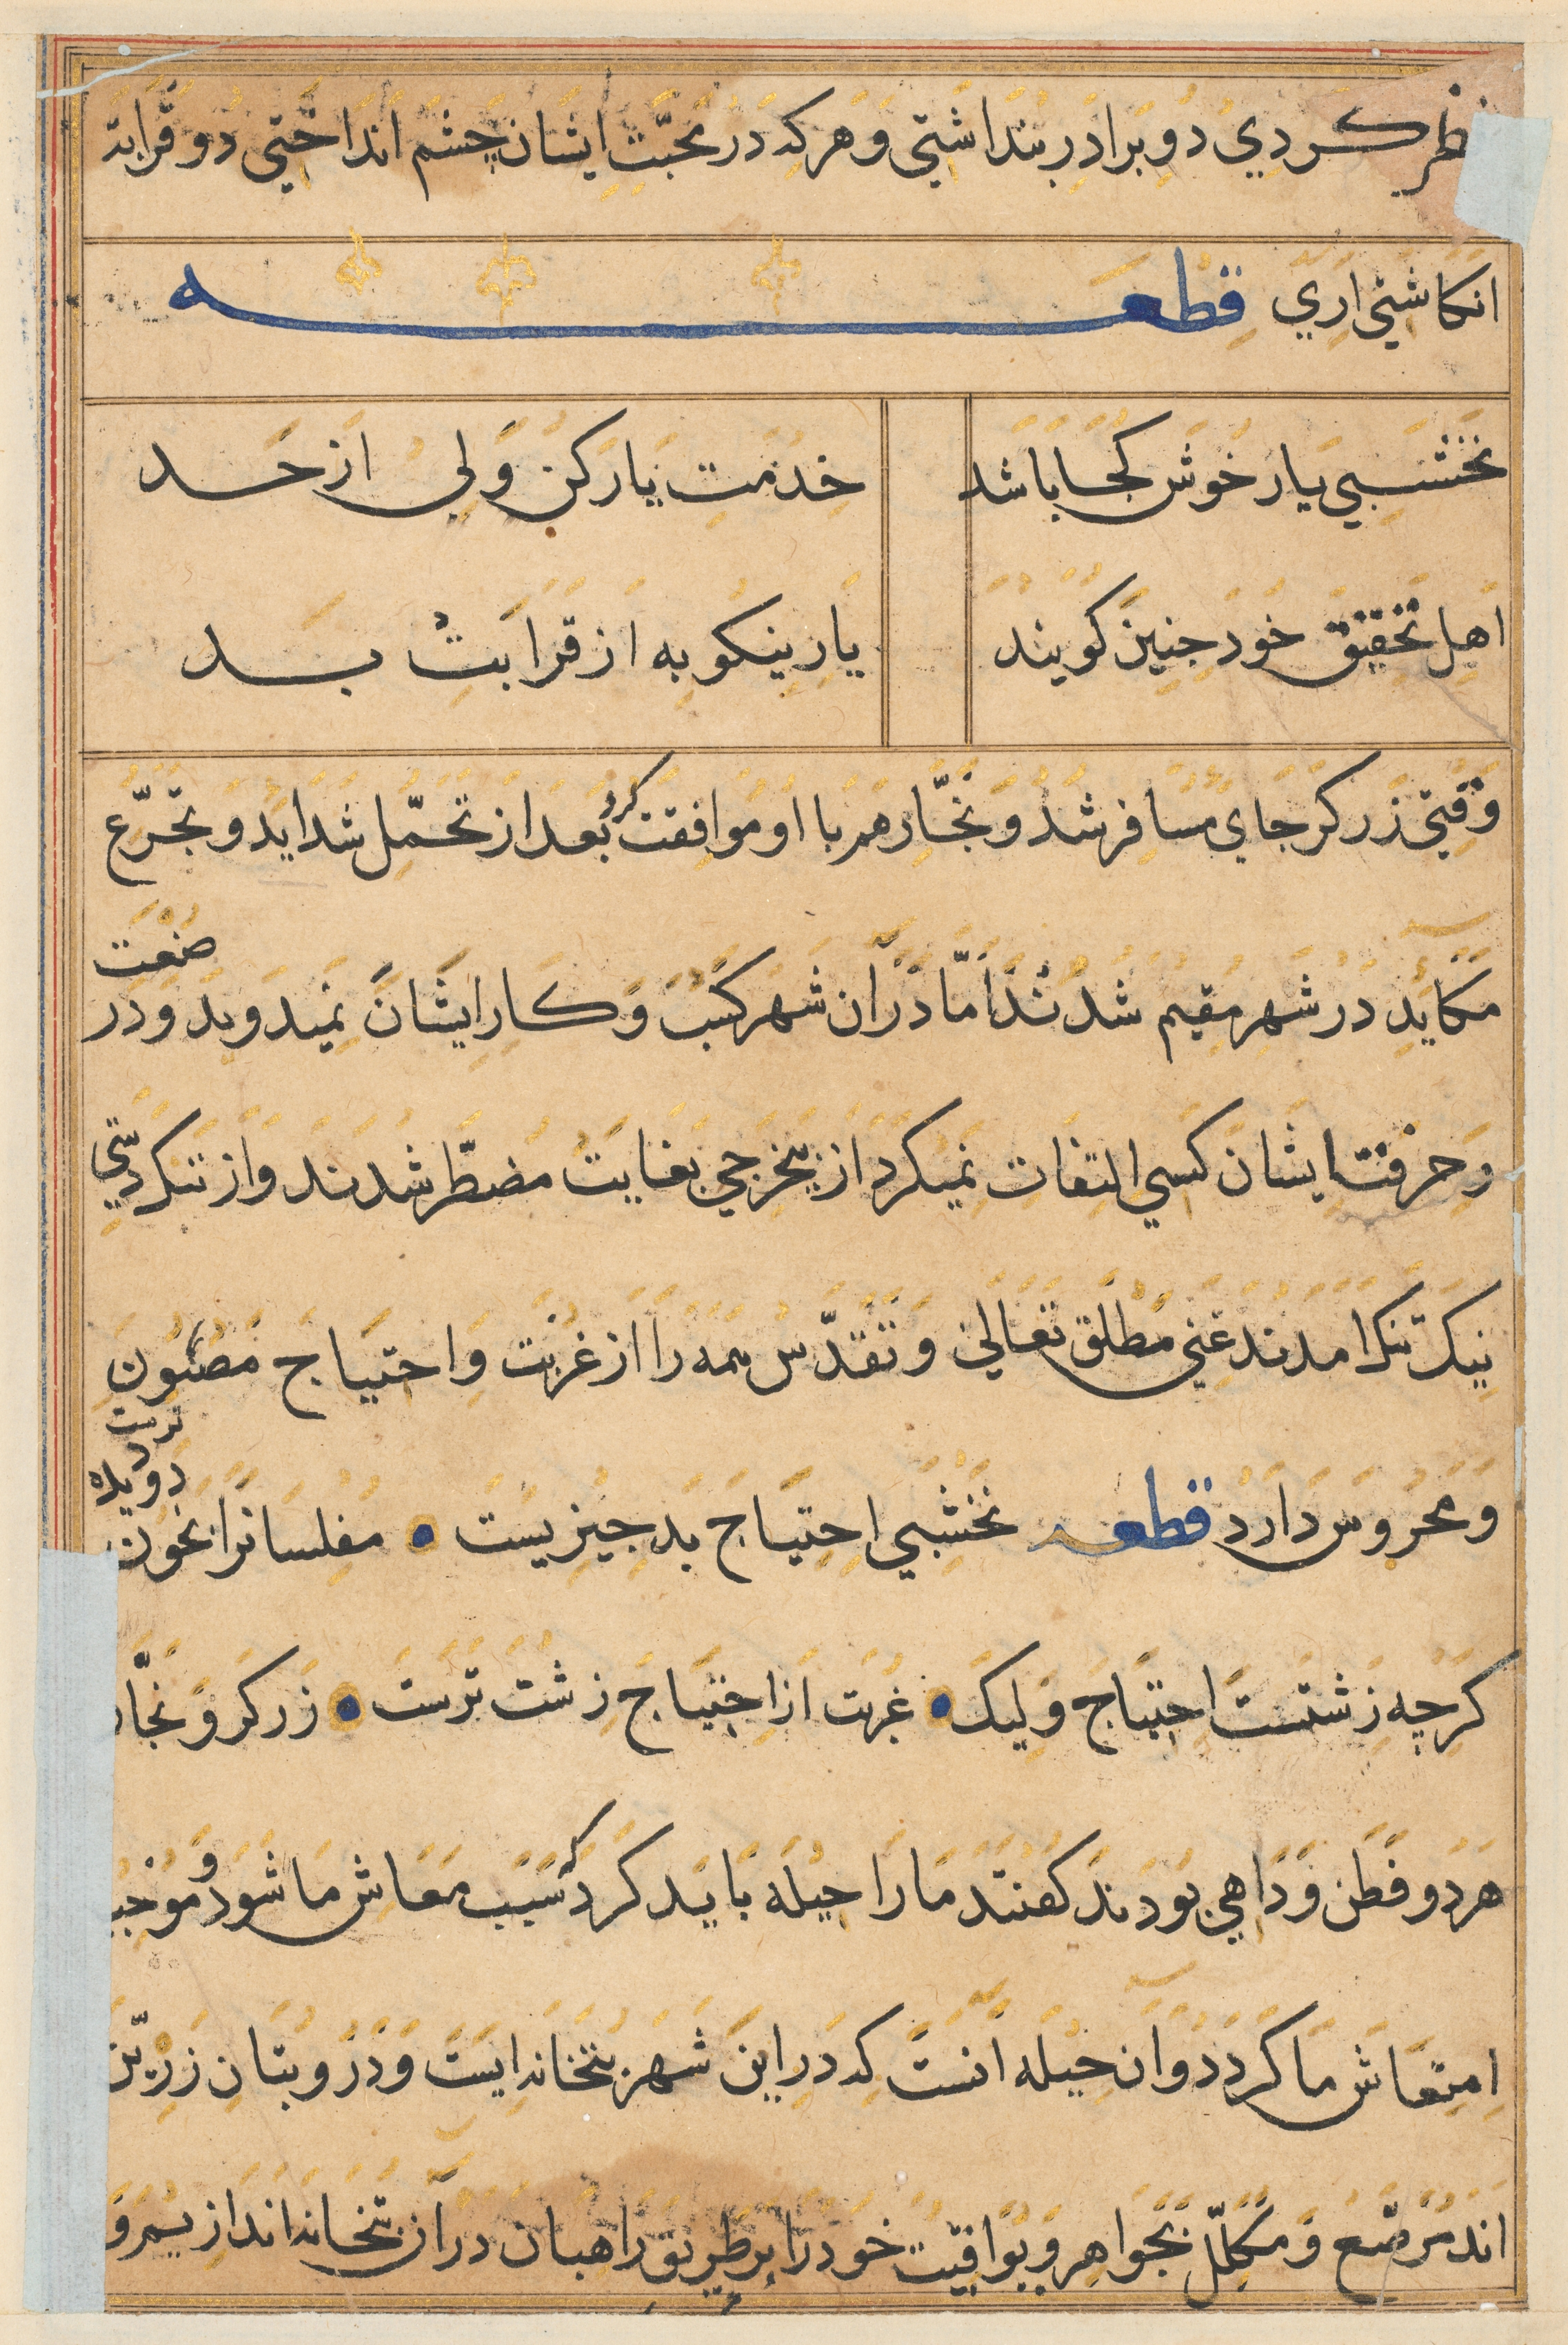 نظر کردی دو برادر بنداشتی و هر که در محبت ایشان چشم انداختی دو قرابة
انکاشتی اری قطعه
نخشبی یار خوش کجا باشد خدمت یار کن ولی از حد
اهل تحقیق خود جنین کویند یار نیکو به از قرابت بد
وقتی زرکر جای مسافر شد و نجار هم با او موافقت کرد بعد از تحمل شداید و تجرع
مکاید در شهر مقیم شدند اما دران شهر کسب و کار ایشان نمیدوید و در صنعت
و حرفت ایشان کسی التفات نمیکرد از بیخرجی بغایت مضطر شدند و از تنکدستی
نیک تنک امدند غنی مطلق تعالی و تقدس همه را از غربت و احتیاج مصئون
و محروس دارد قطعه نخشبی احتیاج بد جیزیست مفلسانرا بخون دو دیده ترست
کرجه زشتست احتیاج ولیک غربت از احتیاج زشت ترست زرکر و نجار
هر دو فطن و داهی بودند کفتند ما را حیله باید کرد که سبب معاش ما شود و موجب
امتعاش ما کردد و ان حیله انست که در این شهر بتخانه ایست و درو بتان زرین
اند مرصع و مکلل بجواهر و یواقیت خود را بر طریق راهبان دران بتخانه اندازیم و